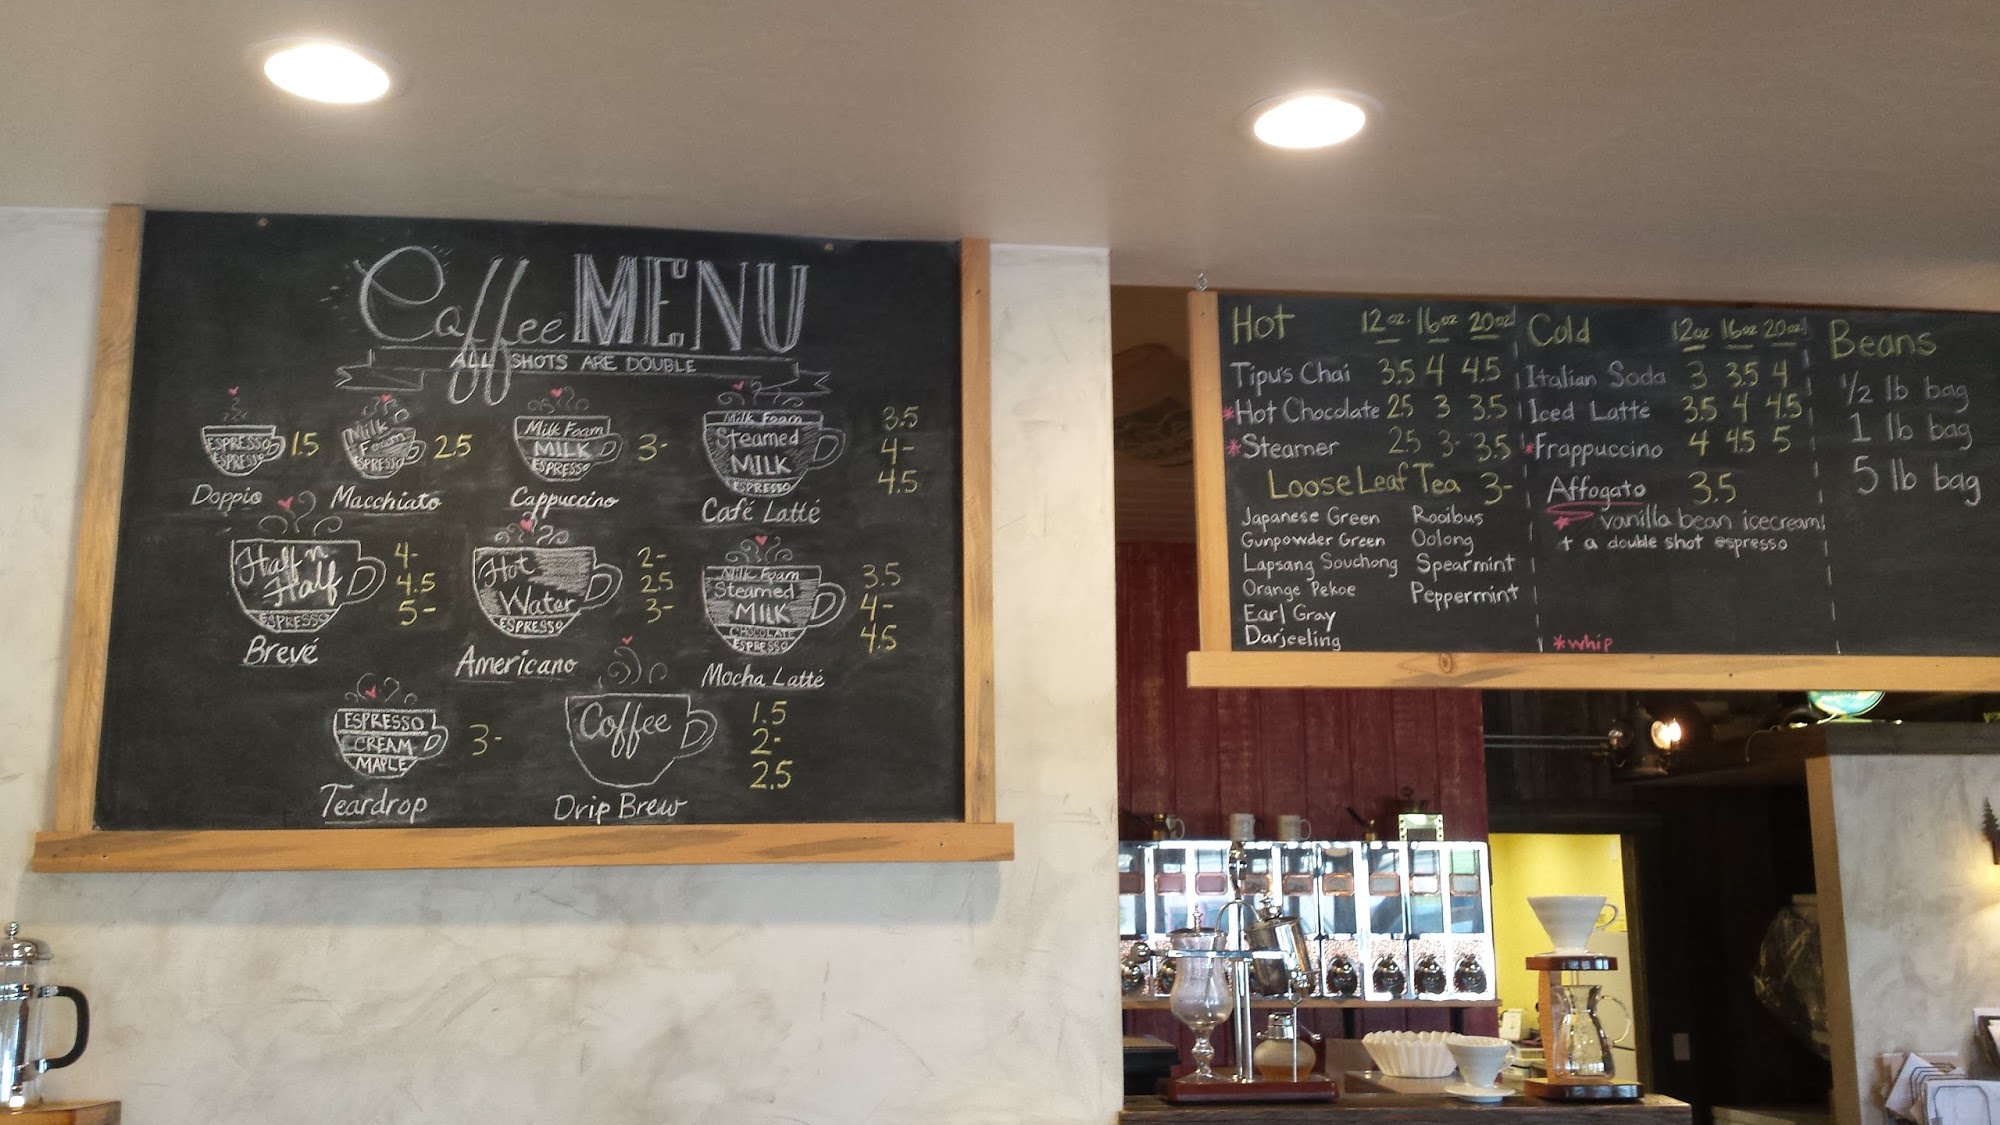 Coffee MENU
ALL SHOTS ARE DOUBLE
ESPRESSO
ESPRESSO
1.5
Doppio
Milk
Foam
ESPRESSO
2.5
Macchiato
Milk Foam
MILK
ESPRESSO
3-
Cappuccino
Milk Foam
Steamed
MILK
ESPRESSO
3.5
4-
4.5
Café Latté
Half n
Half
ESPRESSO
4-
4.5
5-
Brevé
Hot
Water
ESPRESSO
2-
2.5
3-
Americano
Milk Foam
Steamed
MILK
CHOCOLATE
ESPRESSO
3.5
4-
4.5
Mocha Latté
ESPRESSO
CREAM
MAPLE
3-
Teardrop
Coffee
1.5
2-
2.5
Drip Brew
Hot 12oz. 16oz 20oz!
Tipu's Chai 3.5 4 4.5
*Hot Chocolate 2.5 3 3.5
*Steamer 2.5 3- 3.5
Loose Leaf Tea 3-
Japanese Green
Gunpowder Green
Lapsang Souchong
Orange Pekoe
Earl Gray
Darjeeling
Rooibus
Oolong
Spearmint
Peppermint
Cold 12oz 16oz 20oz!
Italian Soda 3 3.5 4
Iced Latté 3.5 4 4.5
*Frappuccino 4 4.5 5
Affogato 3.5
* vanilla bean icecream!
+ a double shot espresso
*whip
Beans
1/2 lb bag
1 lb bag
5 lb bag